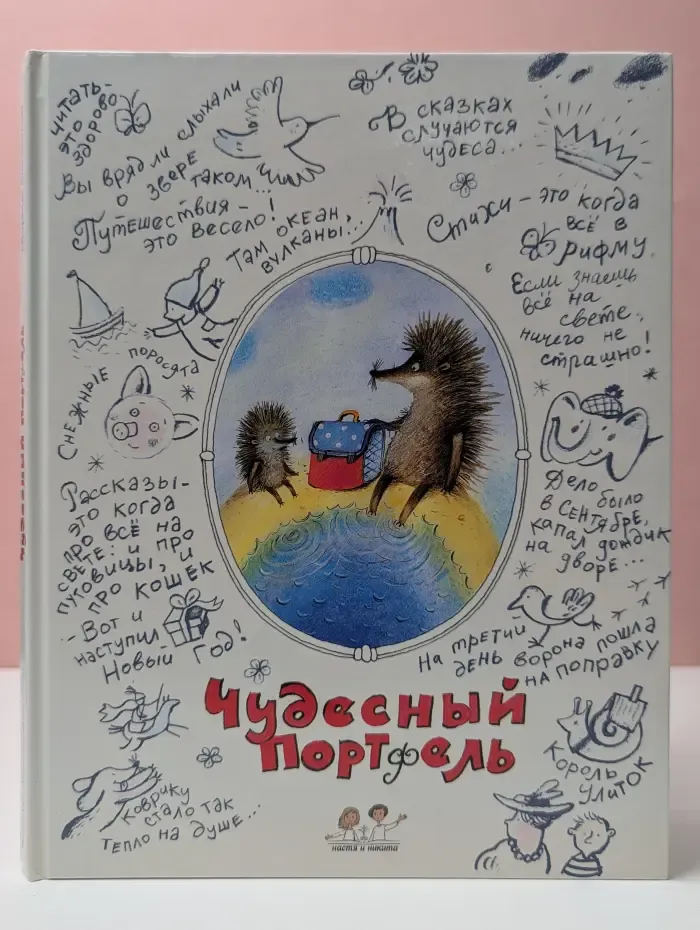 Читать-
это
здорово
Вы вряд ли слыхали
о звере
таком...
Путешествия-
это весело!
Там океан,
вулканы...
В сказках
случаются
чудеса...
Стихи - это когда
всё в
рифму
Если знаешь
всё на
свете,
ничего не
страшно!
Снежные поросята
Рассказы-
это когда
про всё на
свете: и про
пуговицы, и
про кошек
- Вот и
наступил
Новый Год!
Дело было
в сентябре,
капал дождик
на дворе...
На третий
день ворона пошла
на поправку
Чудесный
портфель
Король
улиток
Коврику
стало так
тепло на душе...
настя и никита